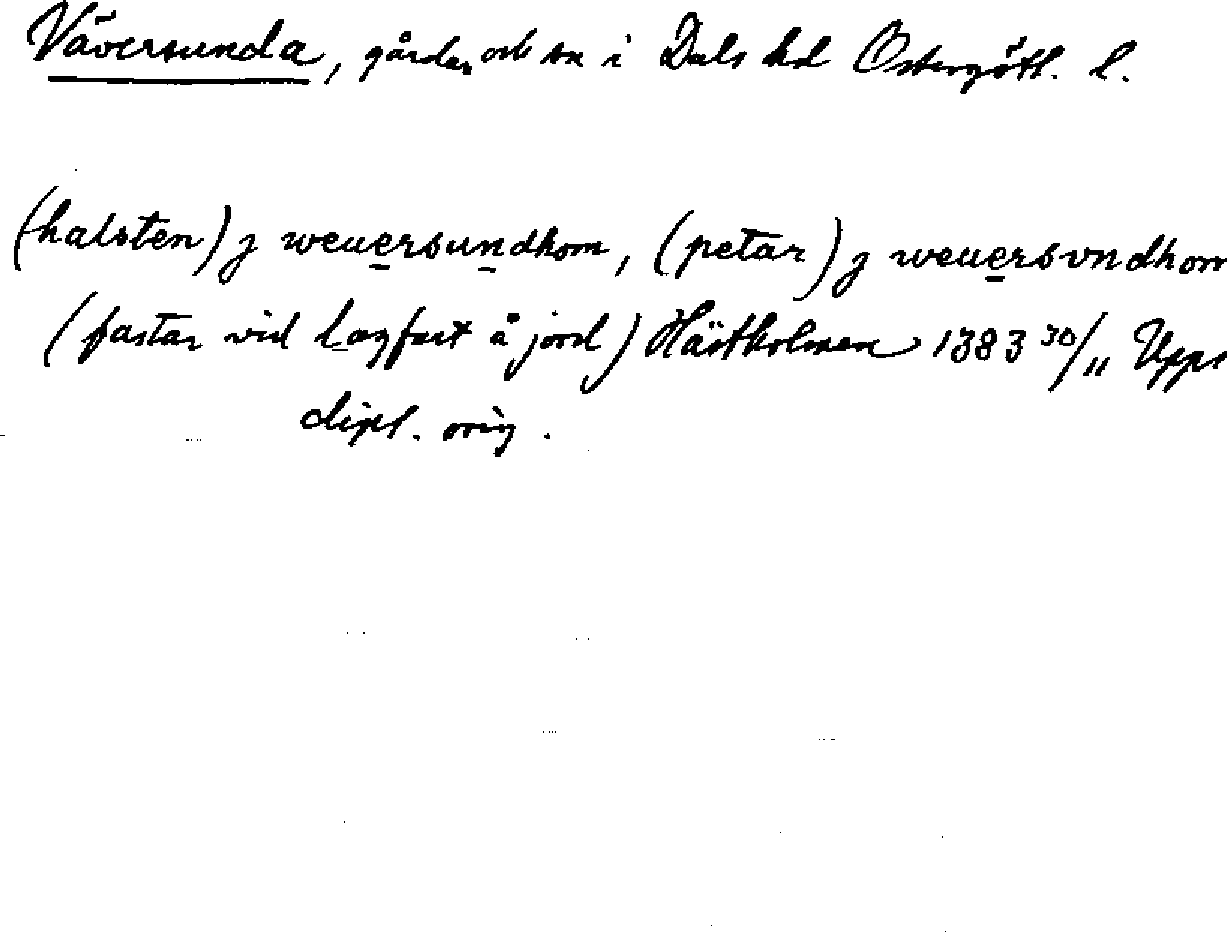 Väversunda, gårdar och sn i Dals hd Östergötl. l.
(halsten) j weuersundhom, (petar) j weuersvndhom
(fastar vid lagfart å jord) Hästholmen 1383 30/11 Upps
dipl. orig.